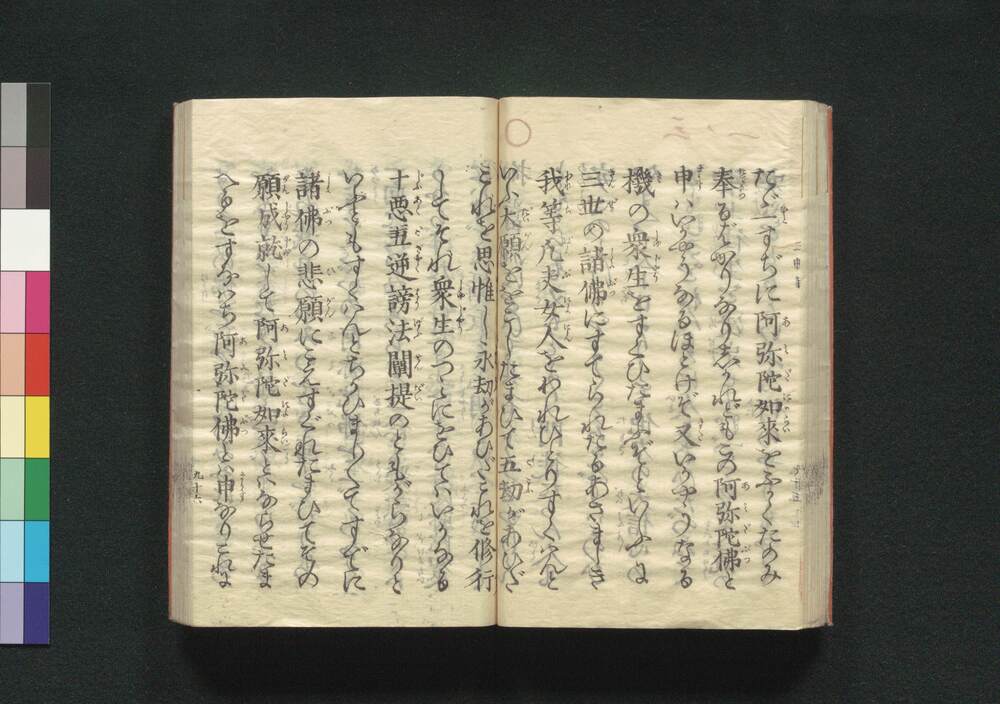 たゞ一すぢに阿弥陀如來をふかくたのみ
奉るばかりなりしかれどもこの阿弥陀佛と
申はいかやうなるほとけぞ又いかやうなる
機の衆生をすくひたまふぞといふに
三世の諸佛にすてられたるあさましき
我等凡夫女人をわれひとりすくはんと
いふ大願ををこしたまひて五劫があひだ
これを思惟し永劫があひだこれを修行
してそれ衆生のつみにをひてはいかなる
十悪五逆謗法闡提のともがらなりと
いふともすくはんとちかひましましてすでに
諸佛の悲願にこえすぐれたまひてその
願成就して阿弥陀如來とはならせたま
へるをすなはち阿弥陀佛とは申なりこれに
九十六